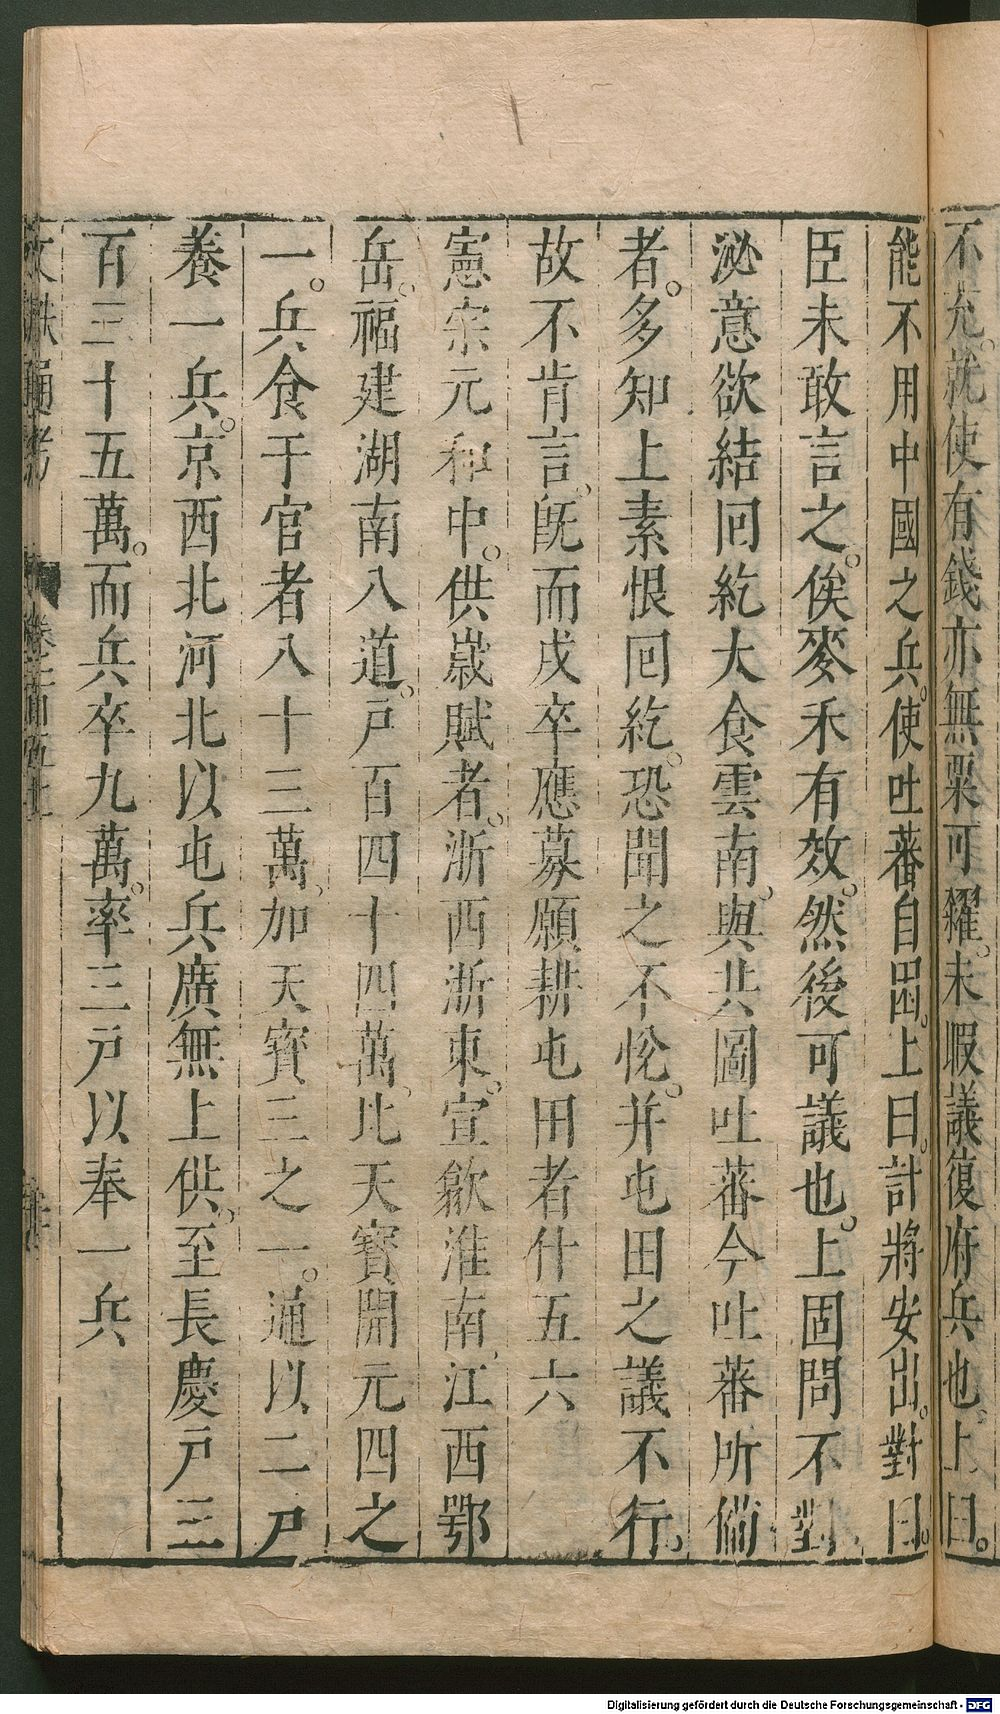 不允。就使有錢亦無粟可糴。未暇議復府兵也。上曰。
能不用中國之兵。使吐蕃自困。上曰。計將安出。對曰。
臣未敢言之。俟麥禾有效。然後可議也。上固問不對
泌意欲結囘紇大食雲南。與共圖吐蕃今吐蕃所備
者。多知上素恨囘紇。恐聞之不恱。并屯田之議不行。
故不肯言。旣而戍卒應募願耕屯田者什五六
憲宗元和中。供嵗賦者。浙西浙東。宣歙淮南。江西鄂
岳。福建湖南八道。戸百四十四萬。比天寶開元四之
一。兵食于官者八十三萬。加天寶三之一。通以二戸
養一兵。京西北河北以屯兵廣無上供。至長慶戸三
百三十五萬。而兵卒九萬。率三戸以奉一兵
文獻通考 卷一百五十一
Digitalisierung gefördert durch die Deutsche Forschungsgemeinschaft - DFG